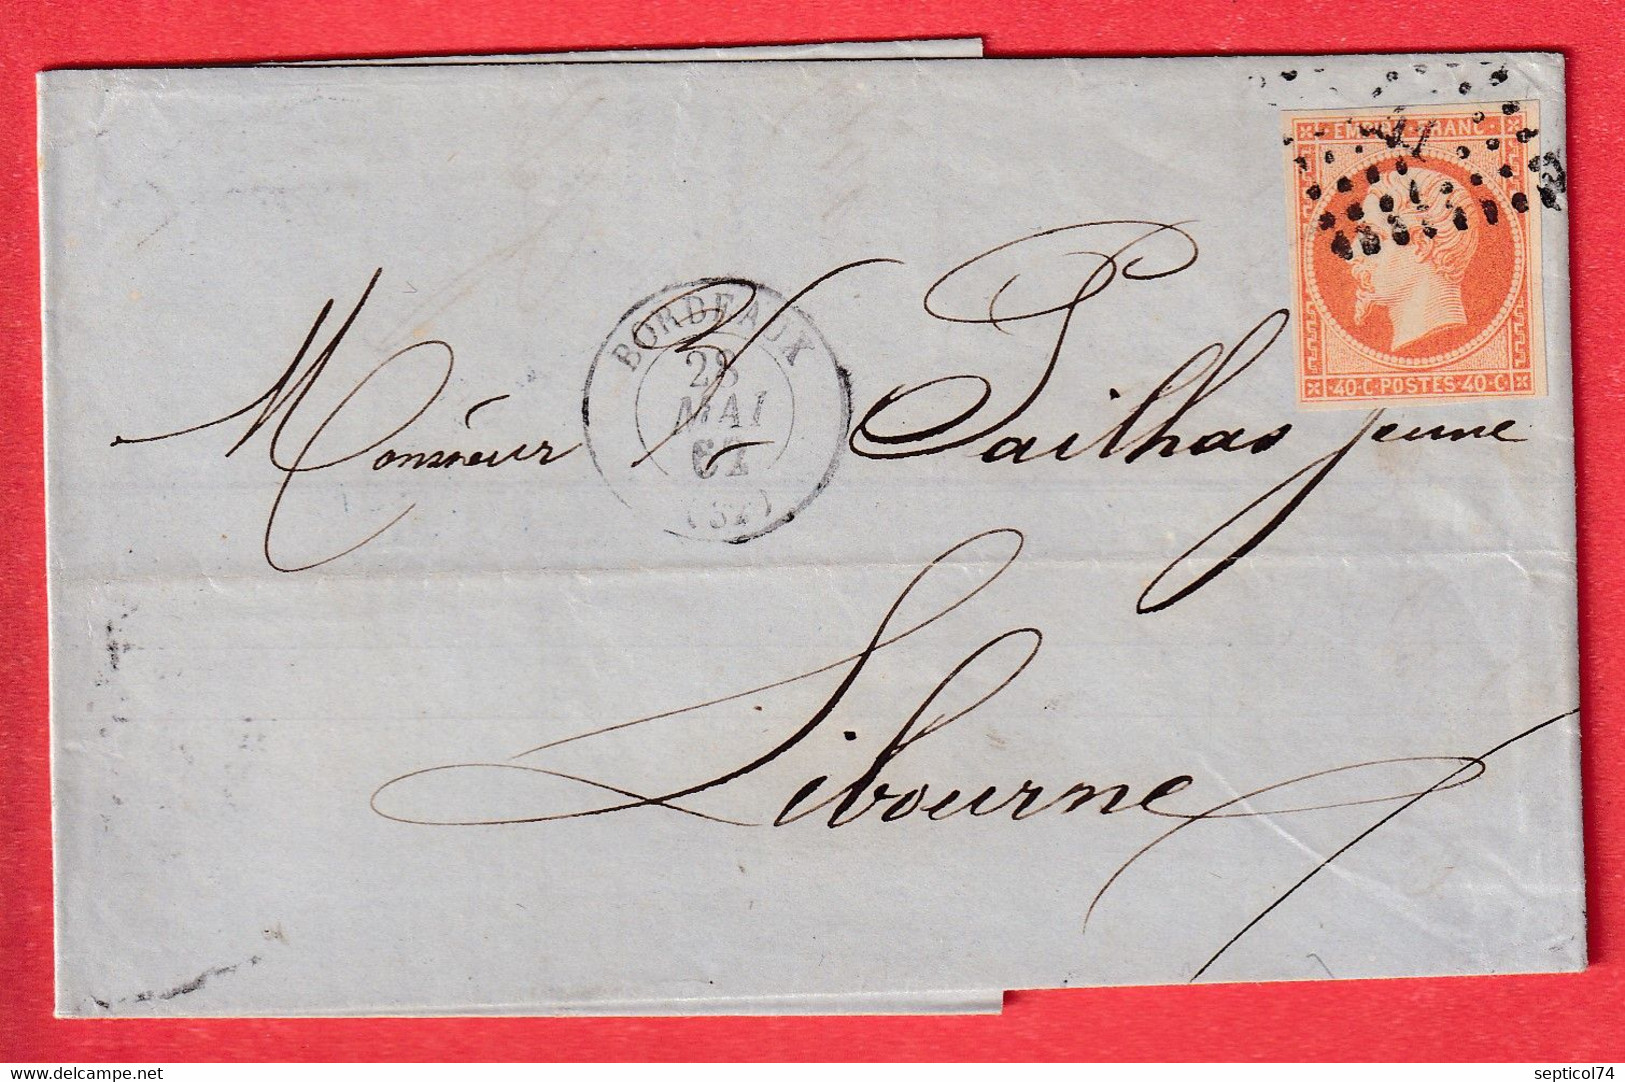 EMPIRE · FRANC ·
40 · C · POSTES · 40 · C
BORDEAUX
28
MAI
(32)
Monsieur Pailhas jeune
Libourne
delcampe.net
septicol74